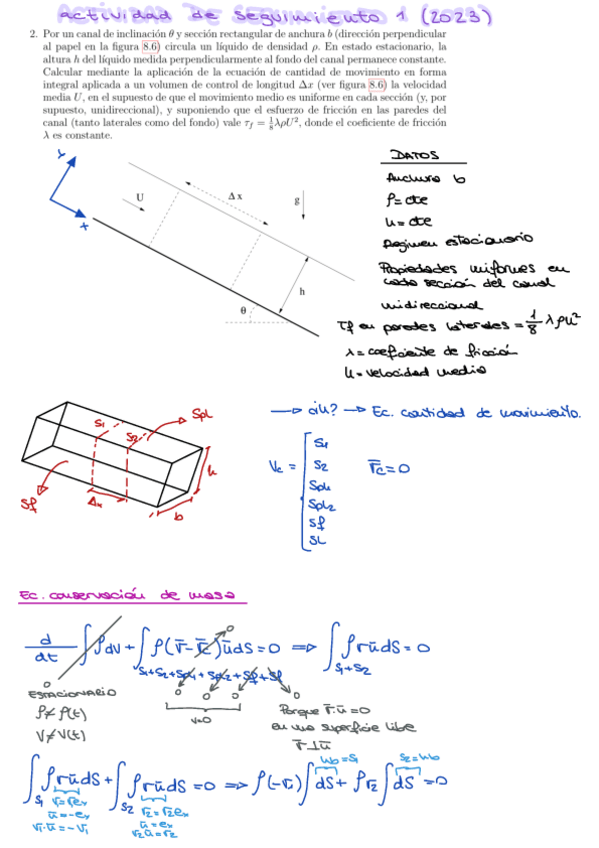 ACTIVIDAD DE SEGUIMIENTO 1 (2023)
2. Por un canal de inclinación θ y sección rectangular de anchura b (dirección perpendicular
al papel en la figura 8.6) circula un líquido de densidad ρ. En estado estacionario, la
altura h del líquido medida perpendicularmente al fondo del canal permanece constante.
Calcular mediante la aplicación de la ecuación de cantidad de movimiento en forma
integral aplicada a un volumen de control de longitud Δx (ver figura 8.6) la velocidad
media U, en el supuesto de que el movimiento medio es uniforme en cada sección (y, por
supuesto, unidireccional), y suponiendo que el esfuerzo de fricción en las paredes del
canal (tanto laterales como del fondo) vale τf = 1/8 λρU², donde el coeficiente de fricción
λ es constante.
Y
X
U
Δx
g
h
θ
DATOS
Anchura b
ρ = cte
u = cte
Regimen estacionario
Propiedades uniformes en
cada sección del canal
unidireccional
τf en paredes laterales = 1/8 λρu²
λ = coeficiente de fricción
u = velocidad media
S1
S2
SpL
h
Sf
Δx
b
→ ¿u? → Ec. cantidad de movimiento.
Vc = [ S1
S2
SpL1
SpL2
Sf
SL
v̄c = 0
Ec. conservación de masa
d/dt ∫ρdV + ∫ρ(v̄ - v̄c)n̄dS = 0 ⇒ ∫ρv̄n̄dS = 0
S1+S2+SpL1+SpL2+Sf+SL
S1+S2
0
ESTACIONARIO
ρ ≠ ρ(t)
V ≠ V(t)
0 0 0 0
v=0
Porque v̄·n̄ = 0
en una superficie libre
v̄ ⊥ n̄
∫ρv̄n̄dS + ∫ρv̄n̄dS = 0 ⇒ ρ(-v1)∫dS + ρv2∫dS = 0
S1
S2
hb = S1
S2 = hb
v̄ = v1ex
n̄ = -ex
v̄1·n̄ = -v1
v̄2 = v2ex
n̄ = ex
v̄2n̄ = v2